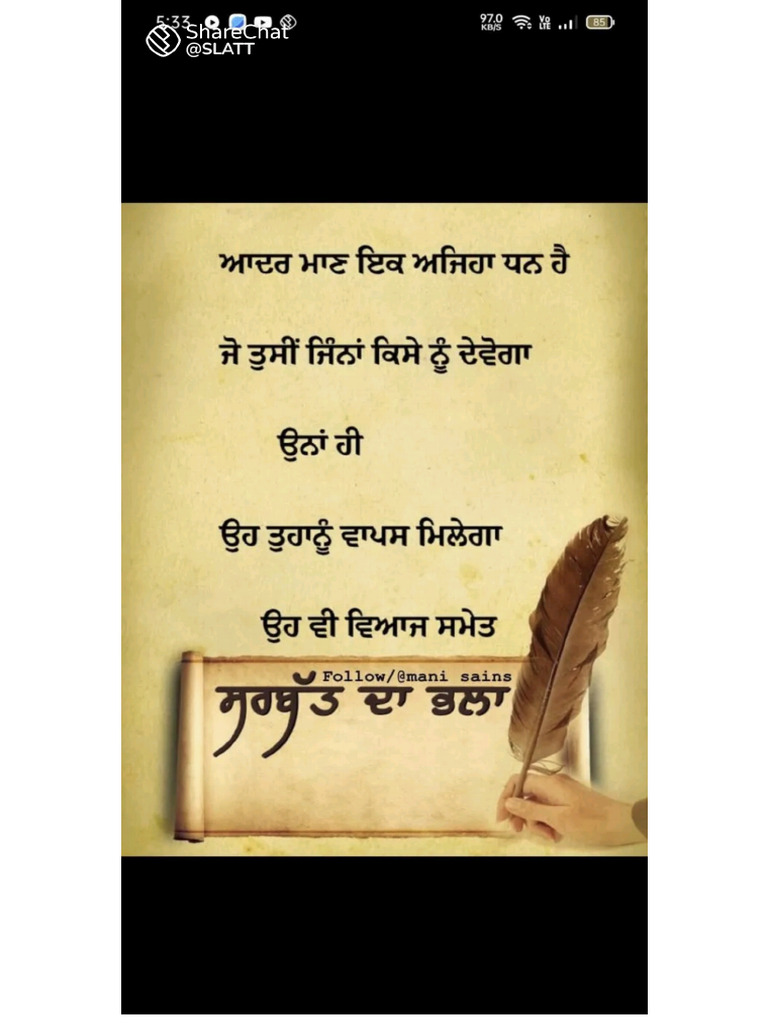 5:33 97.0 KB/S Vo LTE 85
ShareChat
@SLATT
ਆਦਰ ਮਾਣ ਇਕ ਅਜਿਹਾ ਧਨ ਹੈ
ਜੋ ਤੁਸੀਂ ਜਿੰਨਾਂ ਕਿਸੇ ਨੂੰ ਦੇਵੋਗਾ
ਉਨਾਂ ਹੀ
ਉਹ ਤੁਹਾਨੂੰ ਵਾਪਸ ਮਿਲੇਗਾ
ਉਹ ਵੀ ਵਿਆਜ ਸਮੇਤ
Follow/@mani sains
ਸਰਬੱਤ ਦਾ ਭਲਾ